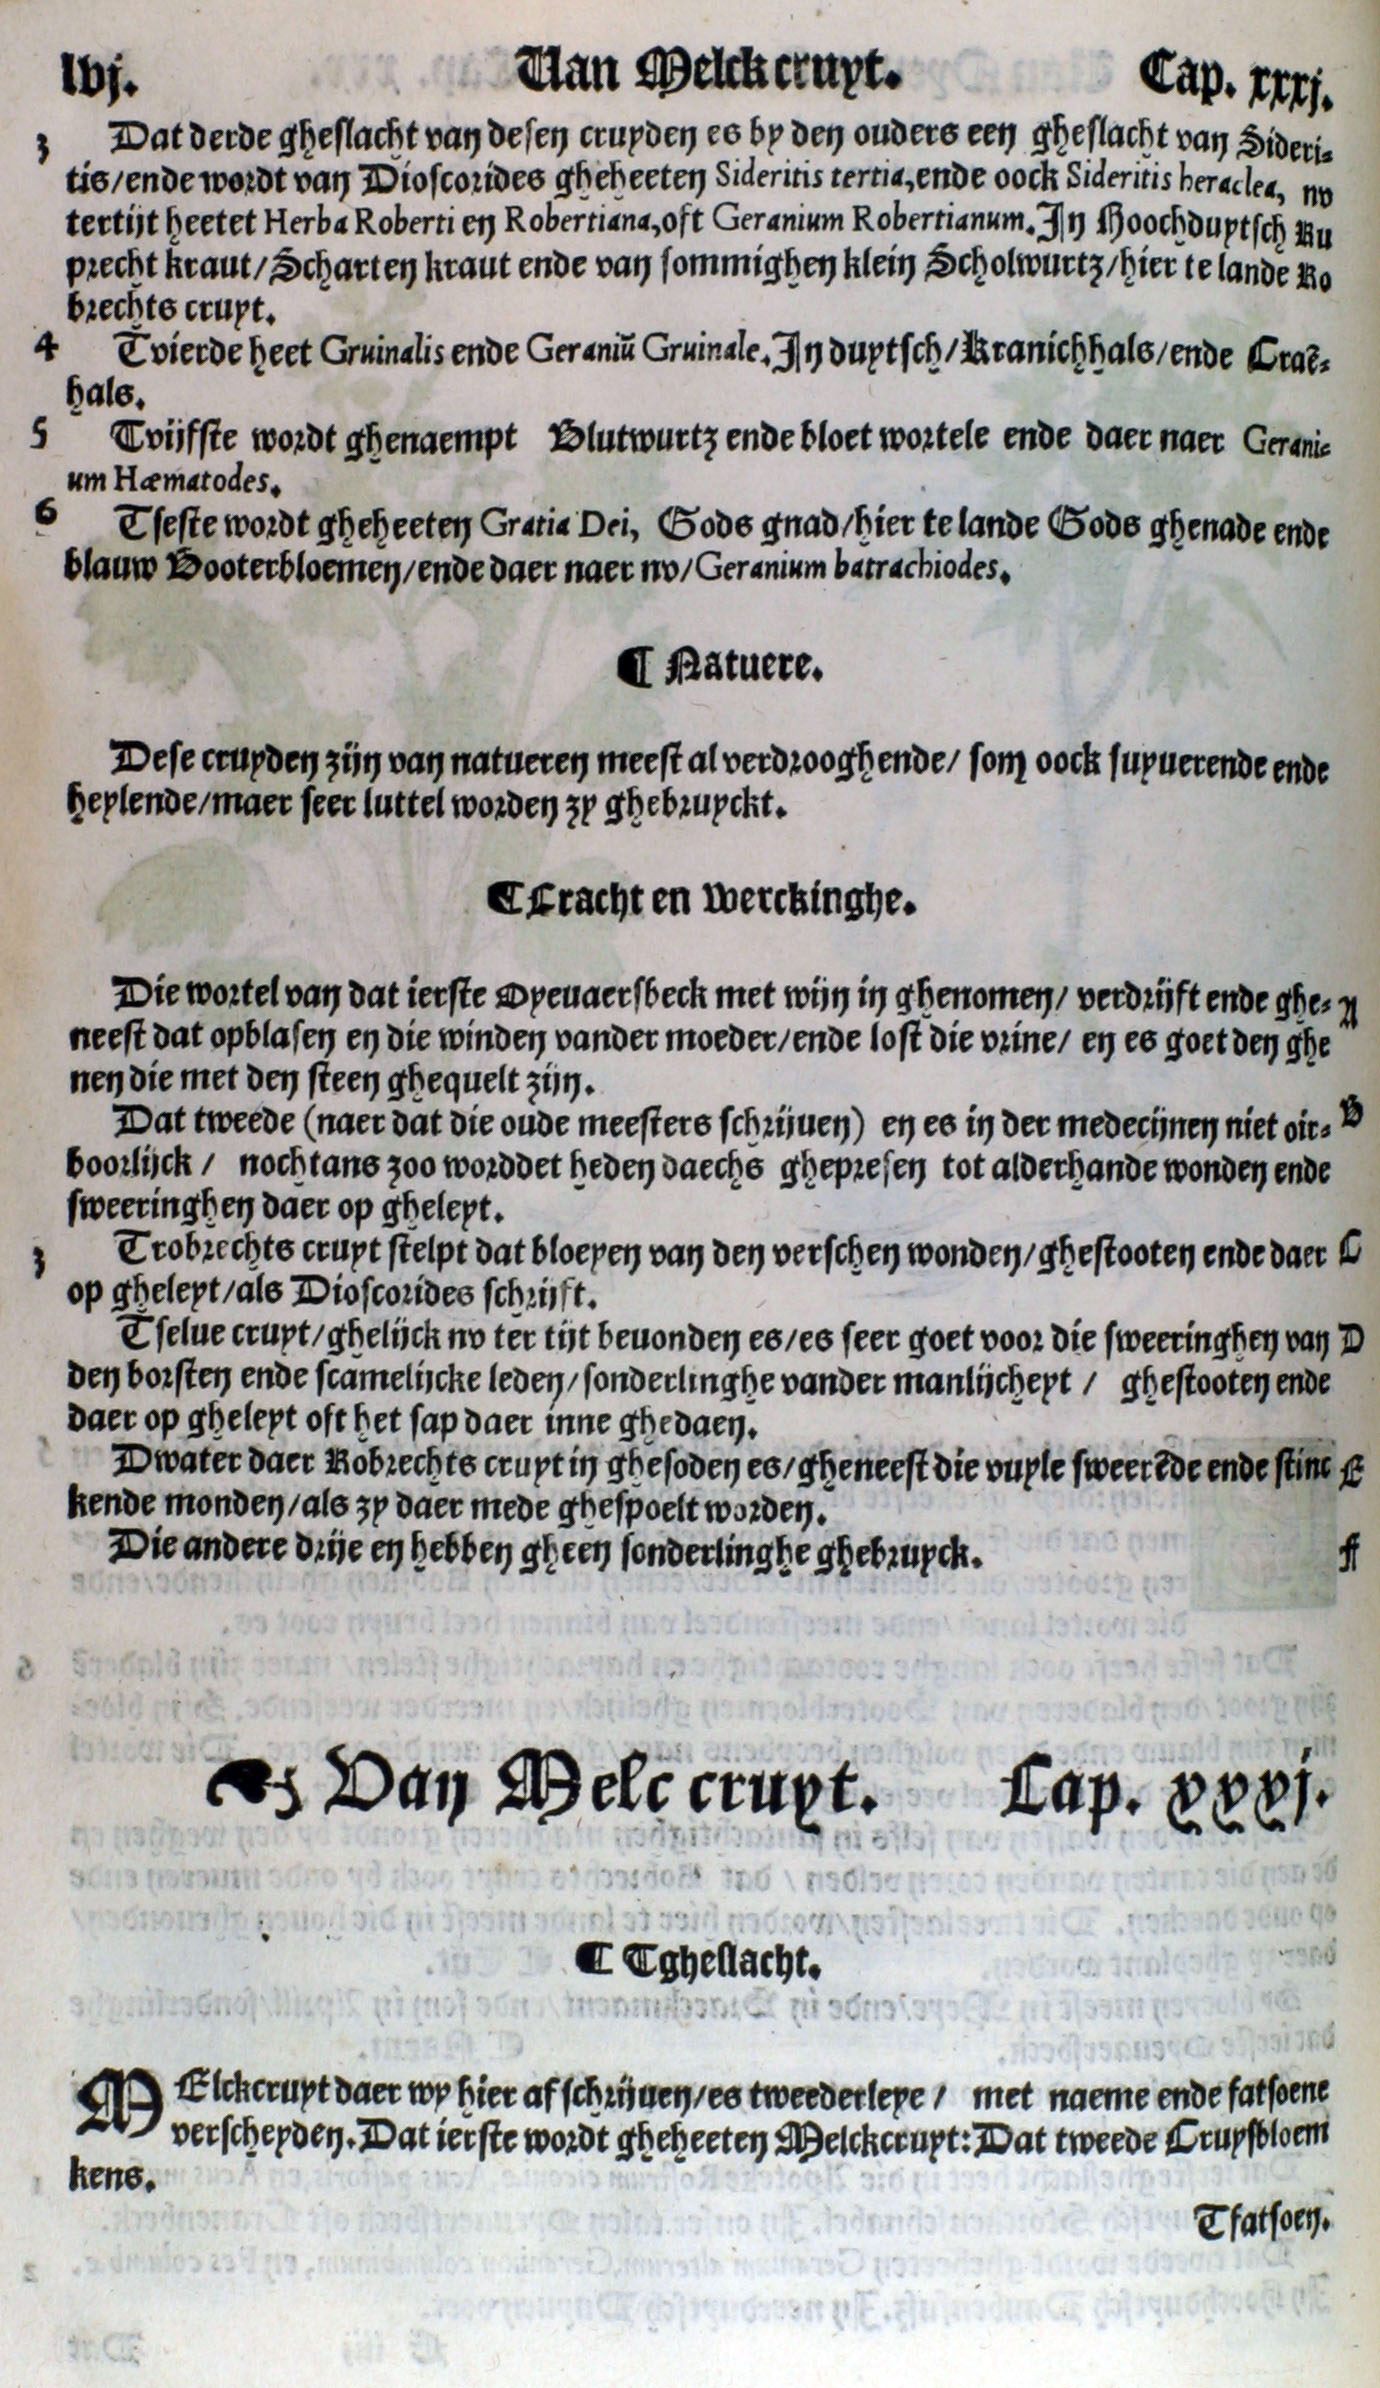 lvj. Van Melck cruyt. Cap. xxxj.
3 Dat derde gheslacht van desen cruyden es by den ouders een gheslacht van Sideri-
tis/ende wordt van Dioscorides gheheeten Sideritis tertia, ende oock Sideritis heraclea, nv
tertijt heetet Herba Roberti eñ Robertiana, oft Geranium Robertianum. In Hoochduytsch Ru
precht kraut/Scharten kraut ende van sommighen klein Scholwurtz/hier te lande Ro
brechts cruyt.
4 Tvierde heet Gruinalis ende Geraniũ Gruinale. In duytsch/Kranichhals/ende Craẽ-
hals.
5 Tvijfste wordt ghenaempt Blutwurtz ende bloet wortele ende daer naer Gerani-
um Hæmatodes.
6 Tseste wordt gheheeten Gratia Dei, Gods gnad/hier te lande Gods ghenade ende
blauw Booterbloemen/ende daer naer nv/Geranium batrachiodes.
¶ Natuere.
Dese cruyden zijn van natueren meest al verdrooghende/ som oock suyuerende ende
heylende/maer seer luttel worden zy ghebruyckt.
¶ Cracht en Werckinghe.
Die wortel van dat ierste Oyeuaersbeck met wijn in ghenomen/ verdrijft ende ghe- A
neest dat opblasen en die winden vander moeder/ende lost die vrine/ en es goet den ghe
nen die met den steen ghequelt zijn.
Dat tweede (naer dat die oude meesters schrijuen) en es in der medecijnen niet oir- B
boorlijck / nochtans zoo worddet heden daechs ghepresen tot alderhande wonden ende
sweeringhen daer op gheleyt.
3 Trobrechts cruyt stelpt dat bloeyen van den verschen wonden/ghestooten ende daer C
op gheleyt/als Dioscorides schrijft.
Tselue cruyt/ghelijck nv ter tijt beuonden es/es seer goet voor die sweeringhen van D
den borsten ende scamelijcke leden/sonderlinghe vander manlijcheyt / ghestooten ende
daer op gheleyt oft het sap daer inne ghedaen.
Dwater daer Robrechts cruyt in ghesoden es/gheneest die vuyle sweerẽde ende stinc E
kende monden/als zy daer mede ghespoelt worden.
Die andere drije en hebben gheen sonderlinghe ghebruyck. F
Van Melc cruyt. Cap. xxxj.
¶ Tgheslacht.
MElckcruyt daer wy hier af schrijuen/es tweederleye / met naeme ende fatsoene
verscheyden. Dat ierste wordt gheheeten Melckcruyt: Dat tweede Cruysbloem
kens.
Tfatsoen.